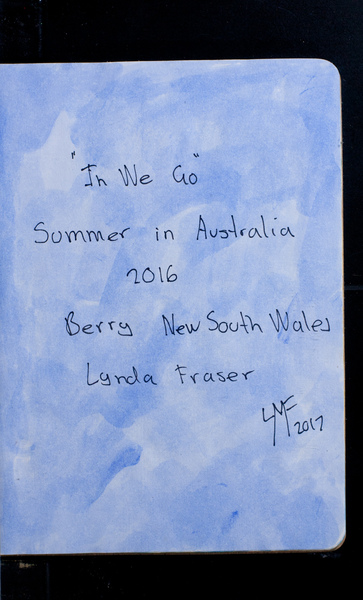 "In We Go"
Summer in Australia
2016
Berry New South Wales
Lynda Fraser
LMF 2017